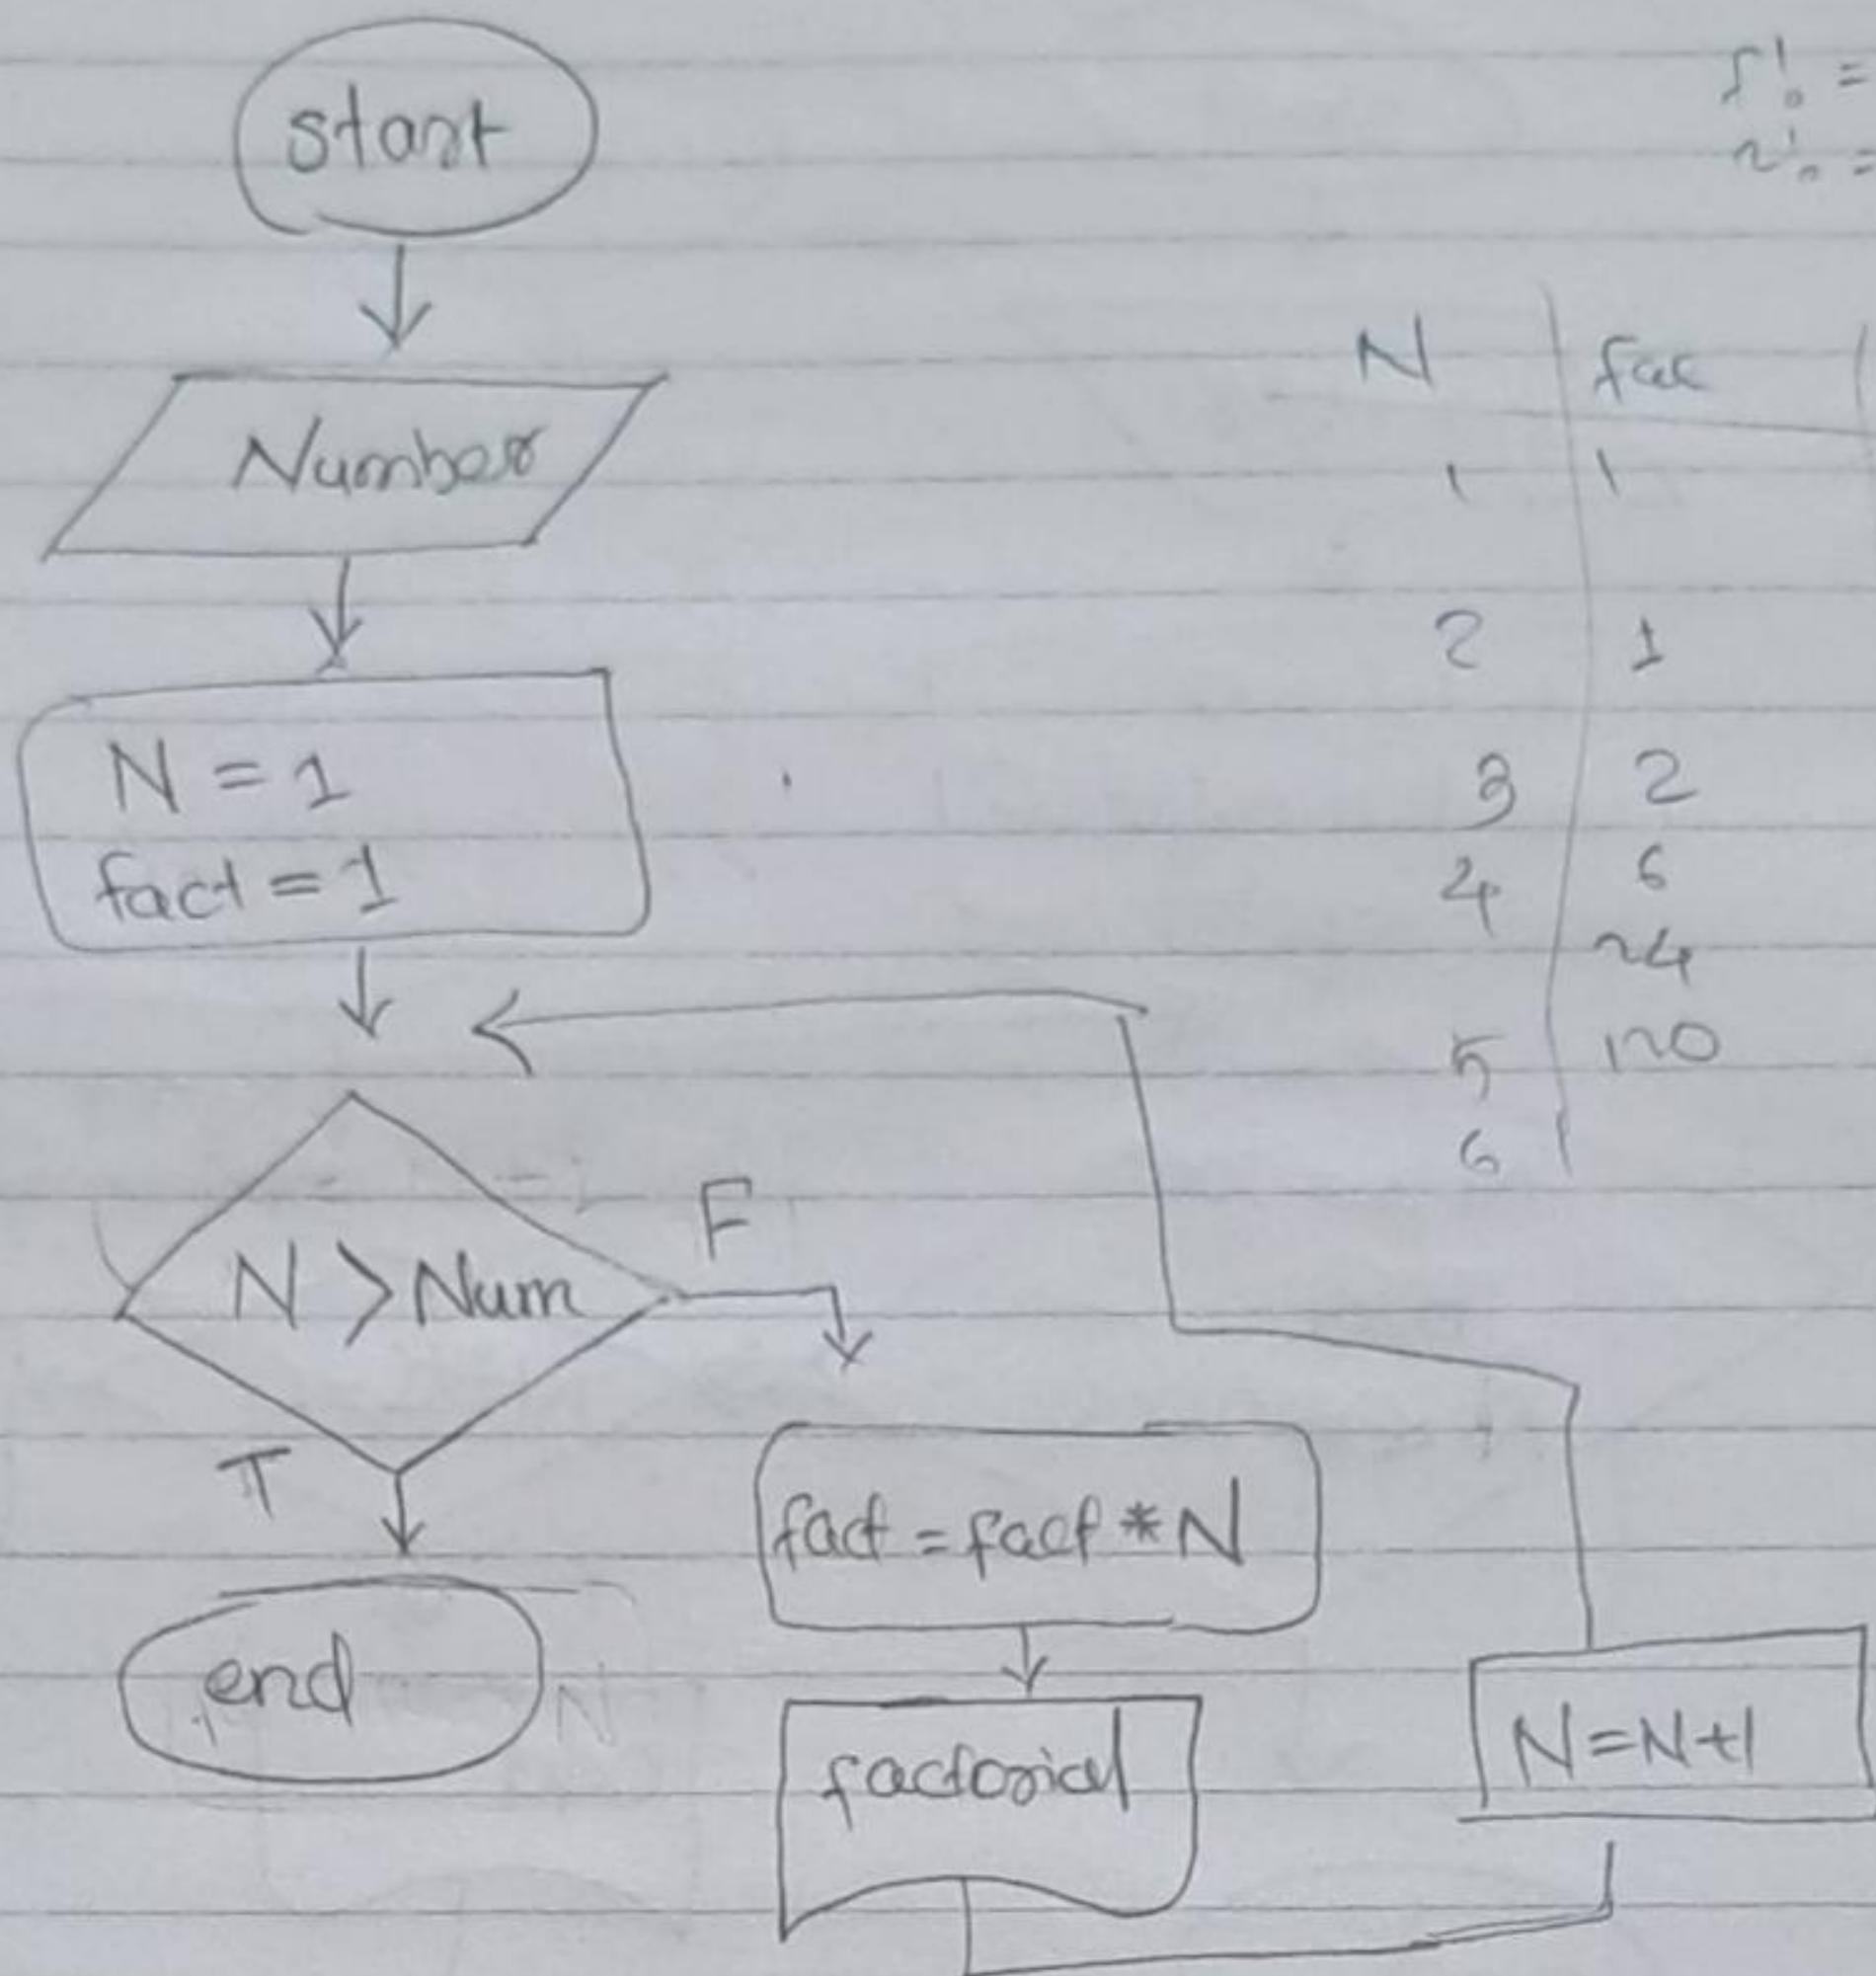 start
Number
N = 1
fact = 1
N > Num
F
T
end
fact = fact * N
factorial
N = N + 1
5! =
N fac
1 1
2 1
3 2
4 6
24
5 120
6
N